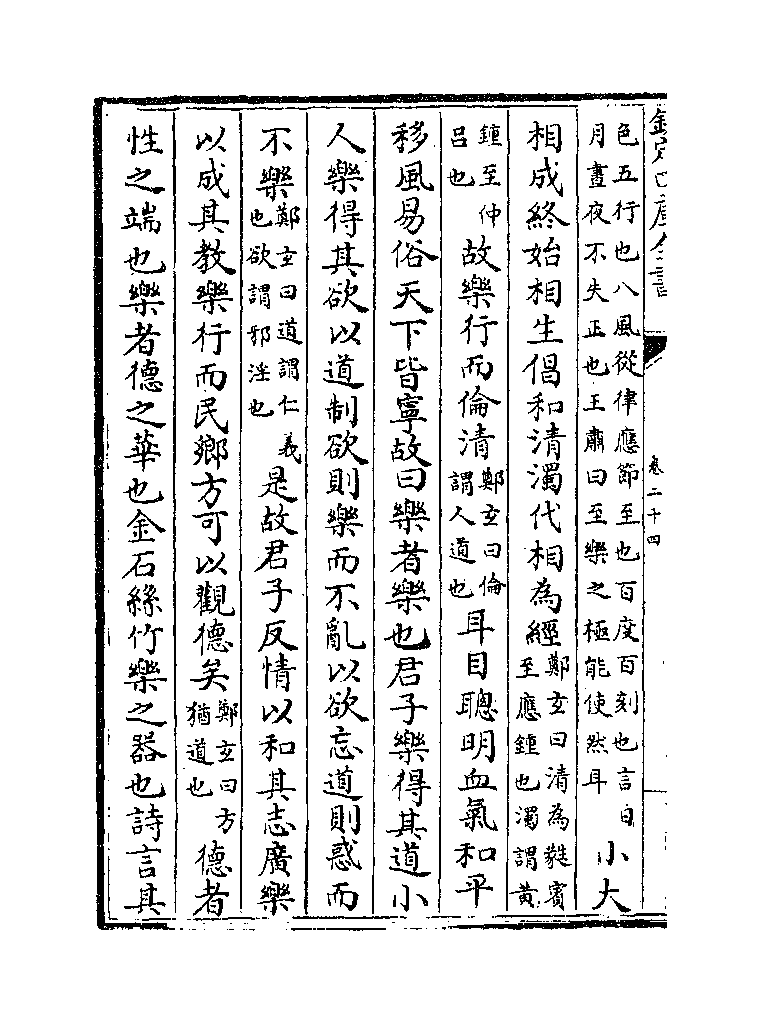 欽定四庫全書
卷二十四
色五行也八風從律應節至也百度百刻也言日
月晝夜不失正也王肅曰至樂之極能使然耳
小大
相成終始相生倡和清濁代相為經
鄭玄曰清為蕤賓
至應鍾也濁謂黃
鍾至仲
呂也
故樂行而倫清
鄭玄曰倫
謂人道也
耳目聰明血氣和平
移風易俗天下皆寧故曰樂者樂也君子樂得其道小
人樂得其欲以道制欲則樂而不亂以欲忘道則惑而
不樂
鄭玄曰道謂仁義
也欲謂邪淫也
是故君子反情以和其志廣樂
以成其教樂行而民鄉方可以觀德矣
鄭玄曰方
猶道也
德者
性之端也樂者德之華也金石絲竹樂之器也詩言其